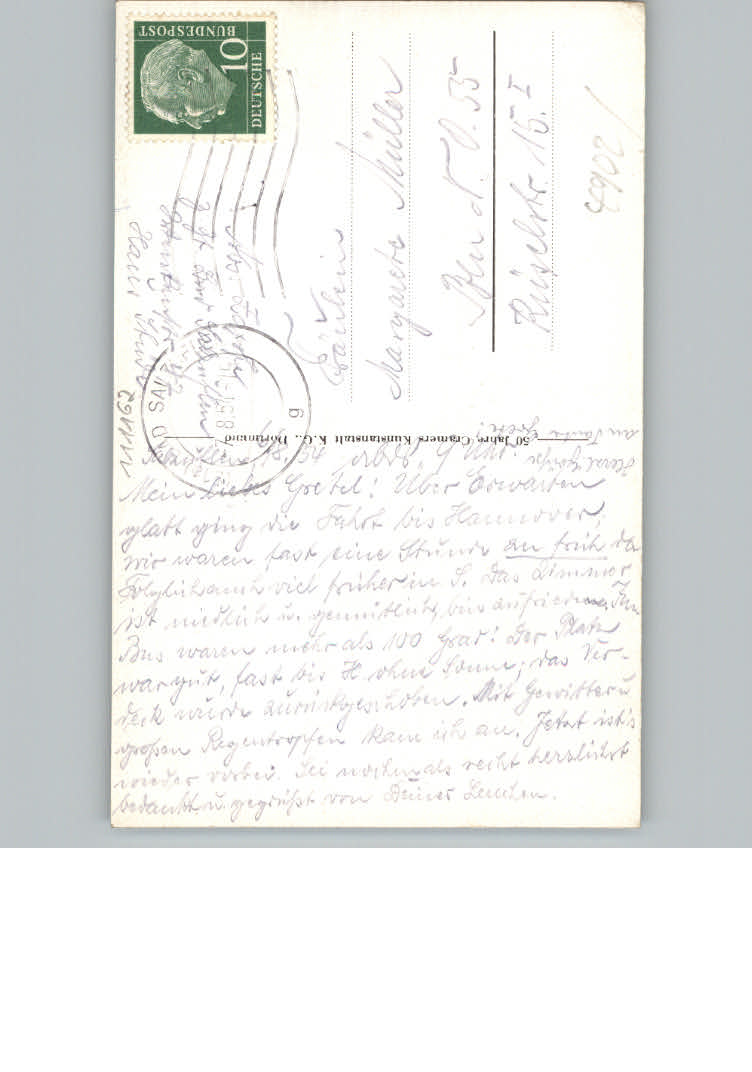 DEUTSCHE
BUNDESPOST
10
Fräulein
Margarete Müller
Bln N.O. 55
Rüselstr. 15. I
4902/
261112
50 Jahre, Cramers Kunstanstalt K.G., Dortmund
BAD SAL
8.51
g
Hans
Herzl. Grüße
an Tante Grete!
Salzuflen, 18. 54 abds. 9 Uhr.
Mein liebes Gretel! Über Erwarten
glatt ging die Fahrt bis Hannover,
wir waren fast eine Stunde zu früh da
Folglich auch viel früher in S. Das Zimmer
ist niedlich u. gemütlich, bin zufrieden. Im
Bus waren mehr als 100 Grad! Der Platz
war gut, fast bis H. ohne Sonne, das Ver-
deck wurde zurückgeschoben. Mit Gewitter u
großen Regentropfen kam ich an. Jetzt ist's
wieder vorbei. Sei nochmals recht herzlichst
bedankt u. gegrüßt von Deiner Lenchen.